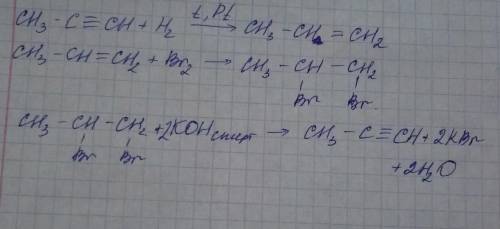 CH₃ - C ≡ CH + H₂ $\xrightarrow{t, Pt}$ CH₃ - CH = CH₂
CH₃ - CH = CH₂ + Br₂ → CH₃ - CH - CH₂
Br Br
CH₃ - CH - CH₂ + 2KOH спирт → CH₃ - C ≡ CH + 2KBr
Br Br + 2H₂O